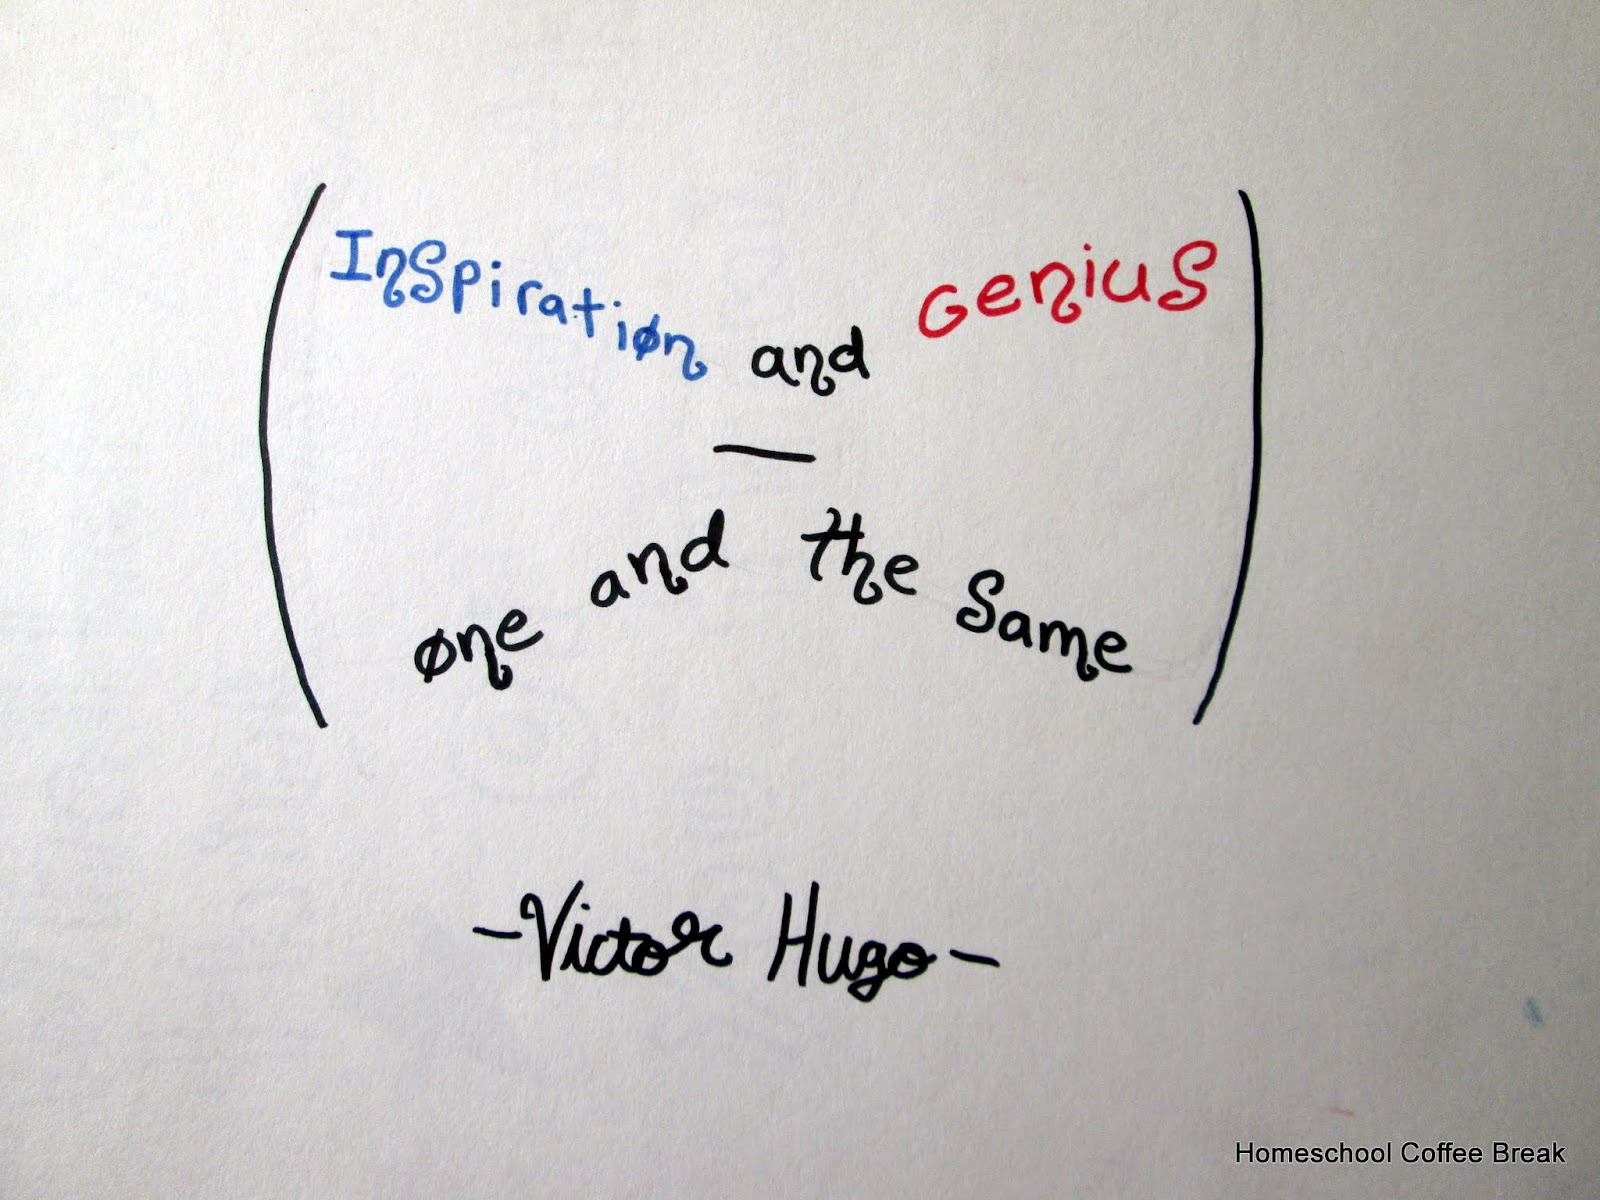 Inspiration and Genius
—
one and the same
-Victor Hugo-
Homeschool Coffee Break